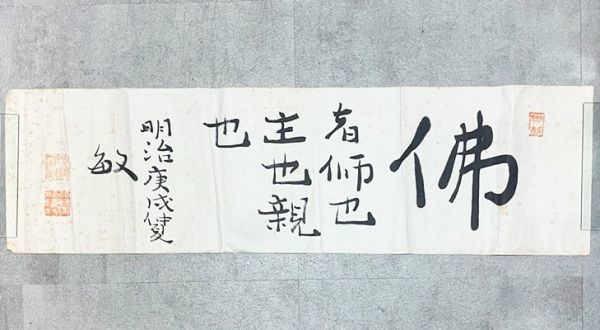 佛
者師也
主也親
也
明治庚戌
敏